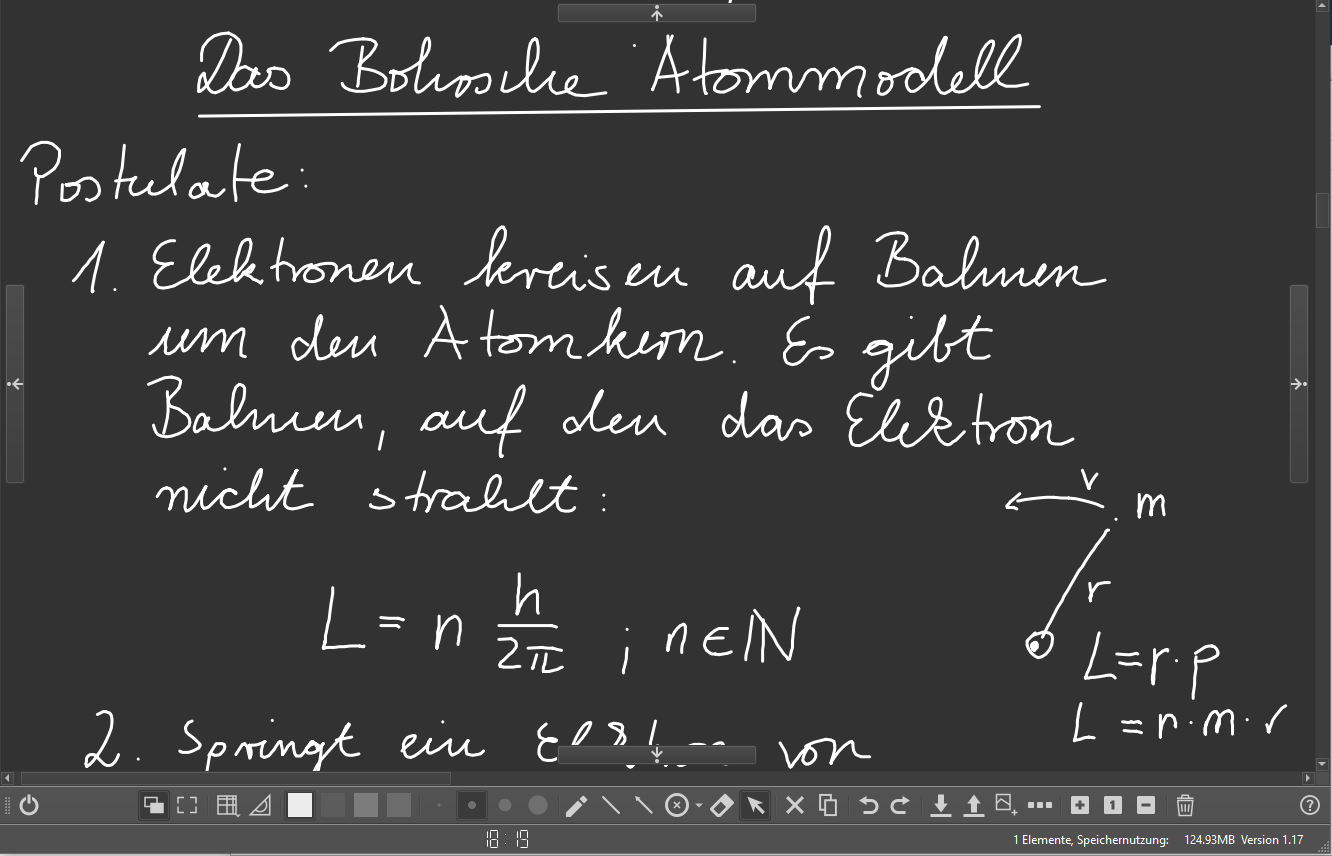 Das Bohrsche Atommodell
Postulate:
1. Elektronen kreisen auf Bahnen
um den Atomkern. Es gibt
Bahnen, auf den das Elektron
nicht strahlt:
v
m
r
L = n h/2π ; n ∈ ℕ
L = r · p
L = r · m · v
2. Springt ein Elektron von
18:19
1 Elemente, Speichernutzung: 124.93MB Version 1.17